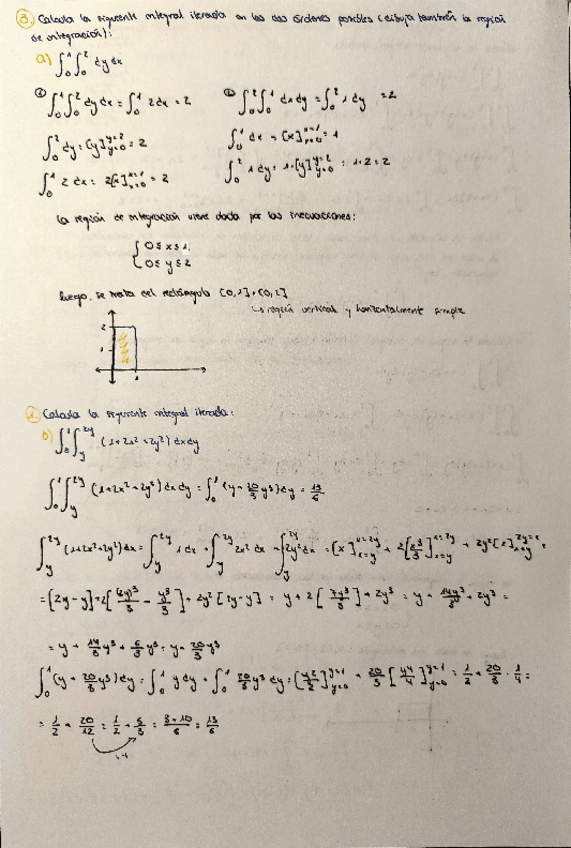 3. Calcula la siguiente integral iterada en los dos órdenes posibles (dibuja también la región
de integración):
a) ∫₀¹∫₀² dy dx
① ∫₀¹∫₀² dy dx = ∫₀¹ 2dx = 2
② ∫₀²∫₀¹ dx dy = ∫₀² 1 dy = 2
∫₀² dy = [y]_{y=0}^{y=2} = 2
∫₀¹ dx = [x]_{x=0}^{x=1} = 1
∫₀¹ 2 dx = 2[x]_{x=0}^{x=1} = 2
∫₀² 1 dy = 1·[y]_{y=0}^{y=2} = 1·2 = 2
La región de integración viene dada por las inecuaciones:
{ 0 ≤ x ≤ 1
0 ≤ y ≤ 2
luego, se trata del rectángulo [0,1]×[0,2]
↳ región vertical y horizontalmente simple
2
1
1
1. Calcula la siguiente integral iterada:
b) ∫₀¹∫_y^{2y} (1+2x²+2y²) dx dy
∫₀¹∫_y^{2y} (1+2x²+2y²) dx dy = ∫₀¹ (y + 20/3 y³) dy = 13/6
∫_y^{2y} (1+2x²+2y²) dx = ∫_y^{2y} 1 dx + ∫_y^{2y} 2x² dx + ∫_y^{2y} 2y² dx = [x]_{x=y}^{x=2y} + 2[x³/3]_{x=y}^{x=2y} + 2y²[x]_{x=y}^{x=2y} =
= [2y-y] + 2[(2y)³/3 - y³/3] + 2y²[2y-y] = y + 2[7y³/3] + 2y³ = y + 14y³/3 + 2y³ =
= y + 14/3 y³ + 6/3 y³ = y + 20/3 y³
∫₀¹ (y + 20/3 y³) dy = ∫₀¹ y dy + ∫₀¹ 20/3 y³ dy = [y²/2]_{y=0}^{y=1} + 20/3 [y⁴/4]_{y=0}^{y=1} = 1/2 + 20/3 · 1/4 =
= 1/2 + 20/12 = 1/2 + 5/3 = 3+10/6 = 13/6
:4